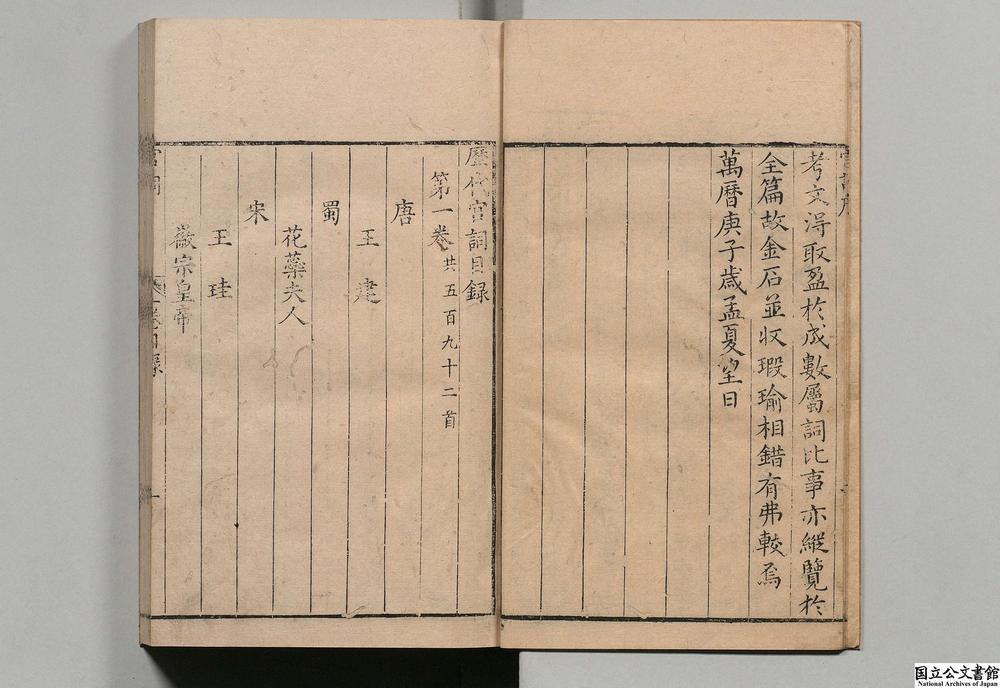 考文得取盈於成數屬詞比事亦縱覽於
全篇故金石並收瑕瑜相錯有弗較焉
萬曆庚子歳孟夏望日
歷代宮詞目録
第一卷共五百九十二首
唐
王建
蜀
花蘂夫人
宋
王珪
徽宗皇帝
国立公文書館
National Archives of Japan